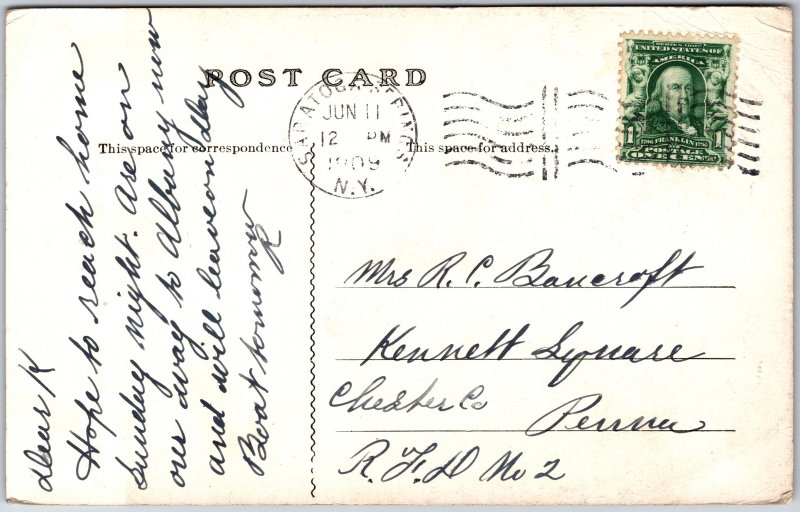 POST CARD
This space for correspondence
This space for address.
SARATOGA SPRINGS
JUN 11
12 PM
1909
N.Y.
SERIES 1902
UNITED STATES OF
AMERICA
1 1
FRANKLIN
POSTAGE
ONE CENT
Dear K
Hope to reach home
Sunday night. Are on
our way to Albany now
and will leave on day
Boat tomorrow
R
Mrs R. C. Bancroft
Kennett Square
Chester Co
Penna
R. F. D No 2